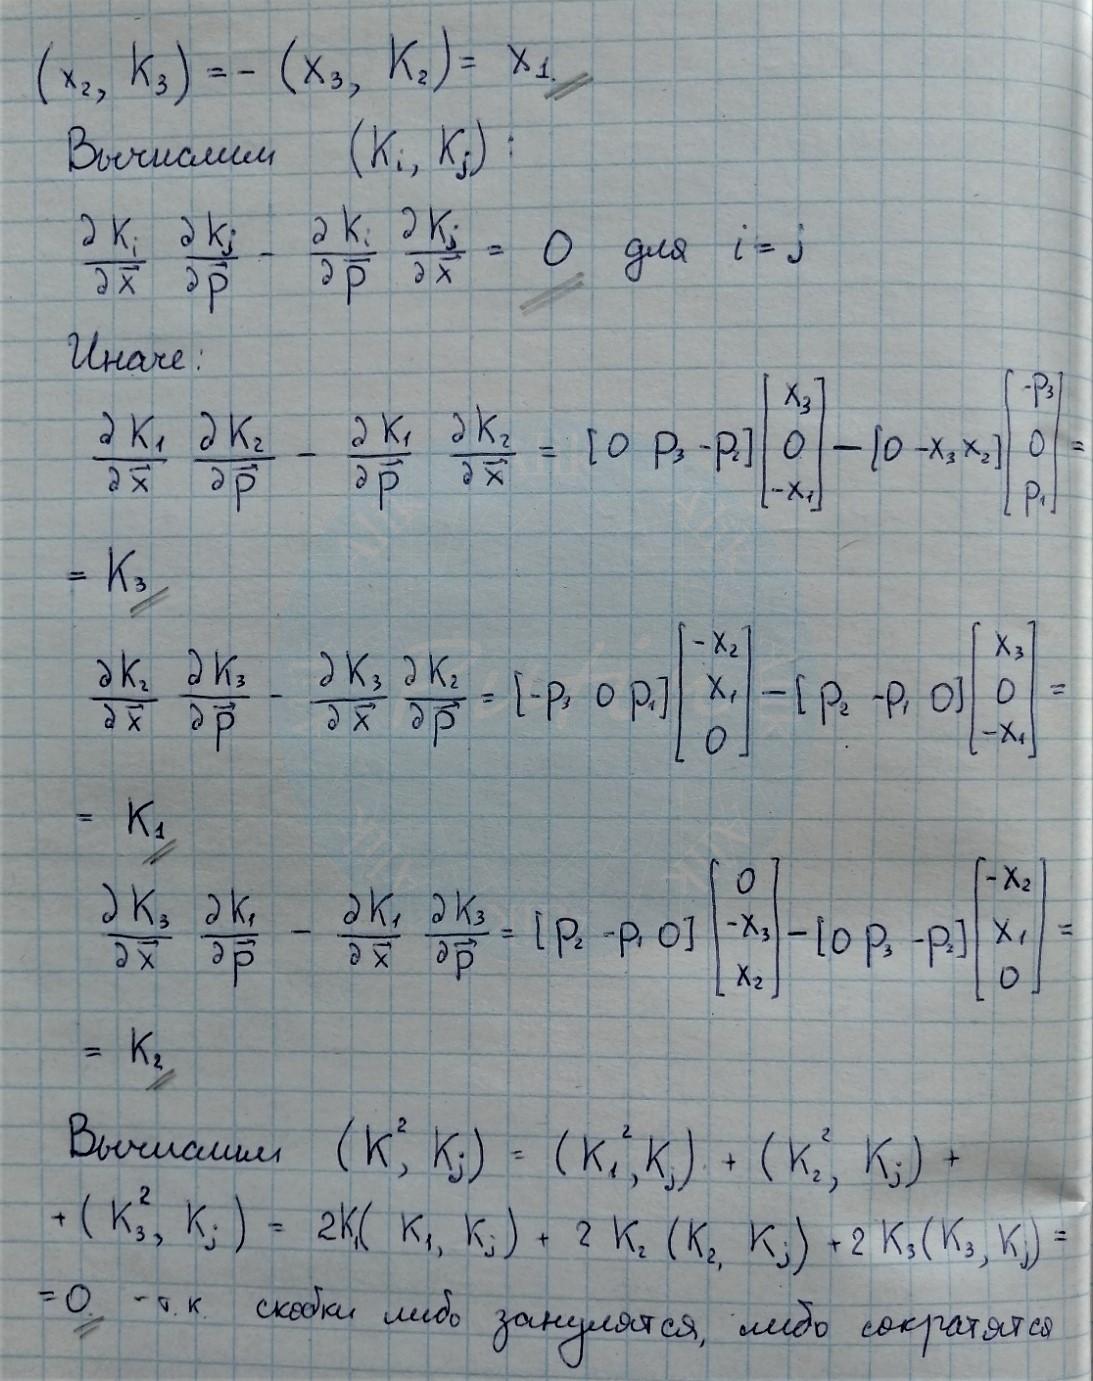 (x₂, K₃) = - (x₃, K₂) = x₁
Вычислим (Kᵢ, Kⱼ):
∂Kᵢ/∂x⃗ ∂Kⱼ/∂p⃗ - ∂Kᵢ/∂p⃗ ∂Kⱼ/∂x⃗ = 0 для i = j
Иначе:
∂K₁/∂x⃗ ∂K₂/∂p⃗ - ∂K₁/∂p⃗ ∂K₂/∂x⃗ = [0 p₃ -p₂] [x₃ 0 -x₁] - [0 -x₃ x₂] [-p₃ 0 p₁] =
= K₃
∂K₂/∂x⃗ ∂K₃/∂p⃗ - ∂K₃/∂x⃗ ∂K₂/∂p⃗ = [-p₃ 0 p₁] [-x₂ x₁ 0] - [p₂ -p₁ 0] [x₃ 0 -x₁] =
= K₁
∂K₃/∂x⃗ ∂K₁/∂p⃗ - ∂K₁/∂x⃗ ∂K₃/∂p⃗ = [p₂ -p₁ 0] [0 -x₃ x₂] - [0 p₃ -p₂] [-x₂ x₁ 0] =
= K₂
Вычислим (K², Kⱼ) = (K₁², Kⱼ) + (K₂², Kⱼ) +
+ (K₃², Kⱼ) = 2K₁(K₁, Kⱼ) + 2K₂(K₂, Kⱼ) + 2K₃(K₃, Kⱼ) =
= 0 - т.к. скобки либо занулятся, либо сократятся